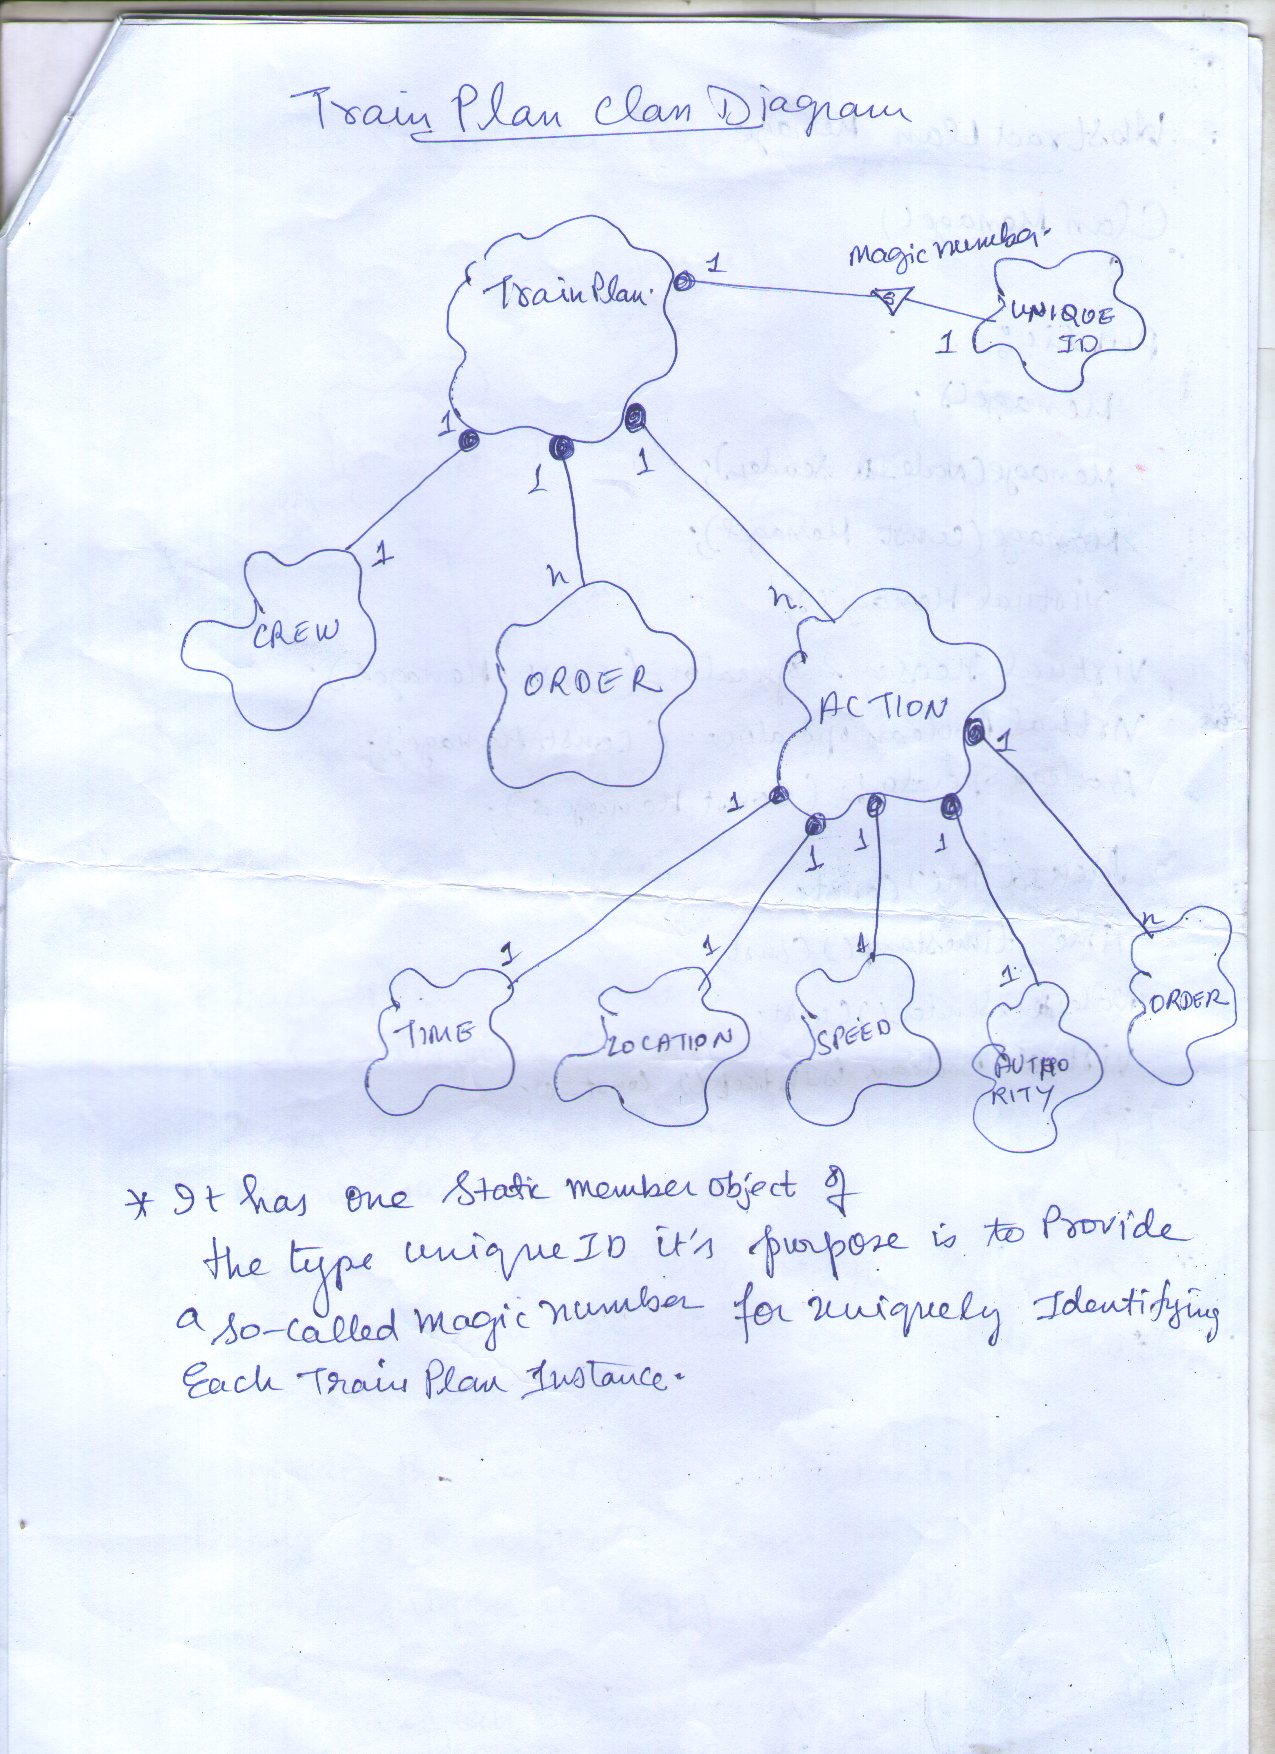 Train Plan Class Diagram
TrainPlan.
1
Magic number.
S
UNIQUE
ID
1
1
1
1
1
n
n.
CREW
ORDER
ACTION
1
1
1
1
1
1
1
1
1
n
TIME
LOCATION
SPEED
AUTHO
RITY
ORDER
* It has one Static member object of
the type uniqueID it's purpose is to Provide
a so-called magic number for uniquely Identifying
Each Train Plan Instance.